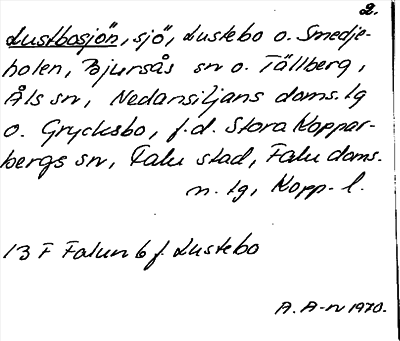 2.
Lustbosjön, sjö, Lustebo o. Smedje-
holen, Bjursås sn o. Tällberg,
Åls sn, Nedansiljans doms. tg
o. Grycksbo, f.d. Stora Koppar-
bergs sn, Falu stad, Falu doms.
n. tg, Kopp. l.
13 F Falun 6 f. Lustebo
A. A-n 1970.